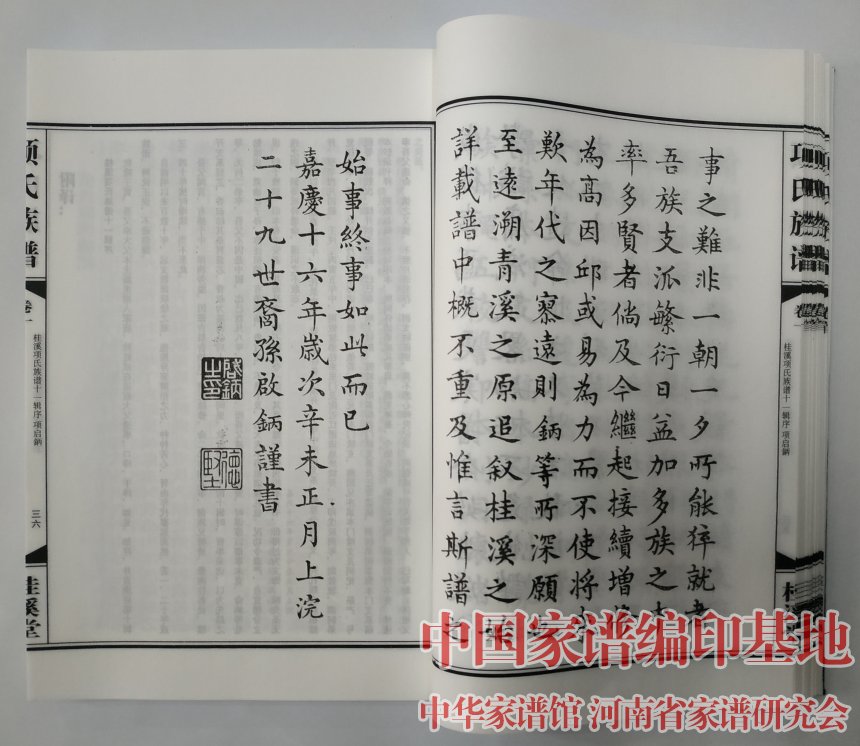 项氏族谱
卷一
桂溪项氏族谱十一辑序 项启鈵
事之難非一朝一夕所能猝就者
吾族支派繁衍日益加多族之
率多賢者倘及今繼起接續增修
為高因邱或易為力而不使將來
歎年代之寥遠則鈵等所深願也
至遠溯青溪之原追叙桂溪之
詳載譜中概不重及惟言斯譜之
始事終事如此而已
嘉慶十六年歲次辛未正月上浣
二十九世裔孫啟鈵謹書
啟鈵之印
项氏族谱
卷一
桂溪项氏族谱十一辑序 项启鈵
三六
桂溪堂
中国家谱编印基地
中华家谱馆 河南省家谱研究会